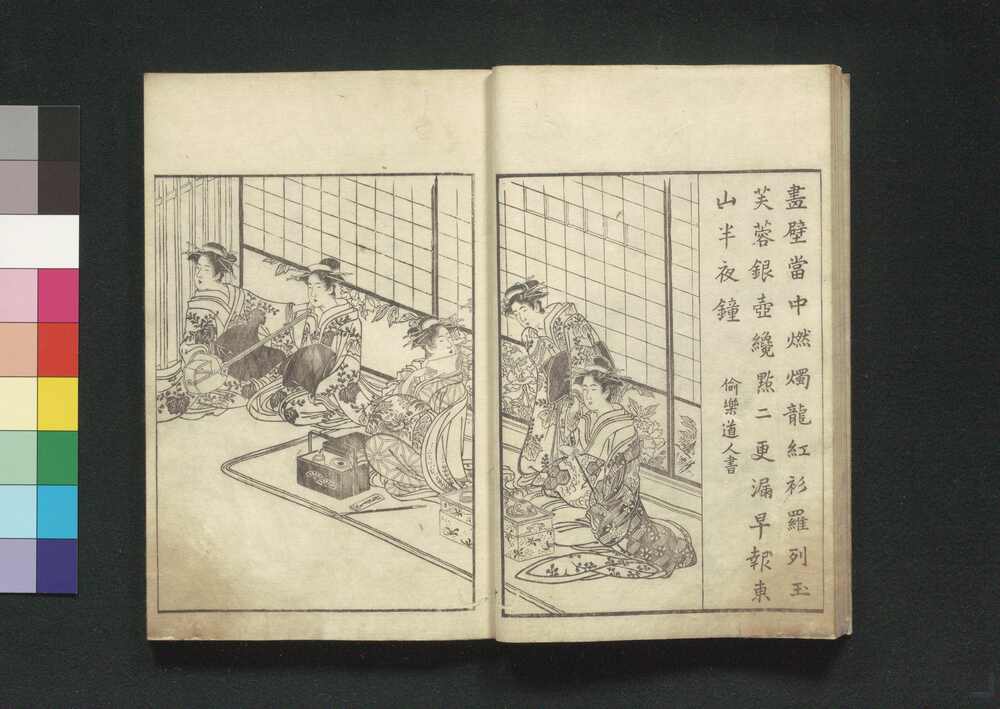 畫壁當中燃燭龍紅衫羅列玉
芙蓉銀壺纔點二更漏早報東
山半夜鐘
偷樂道人書